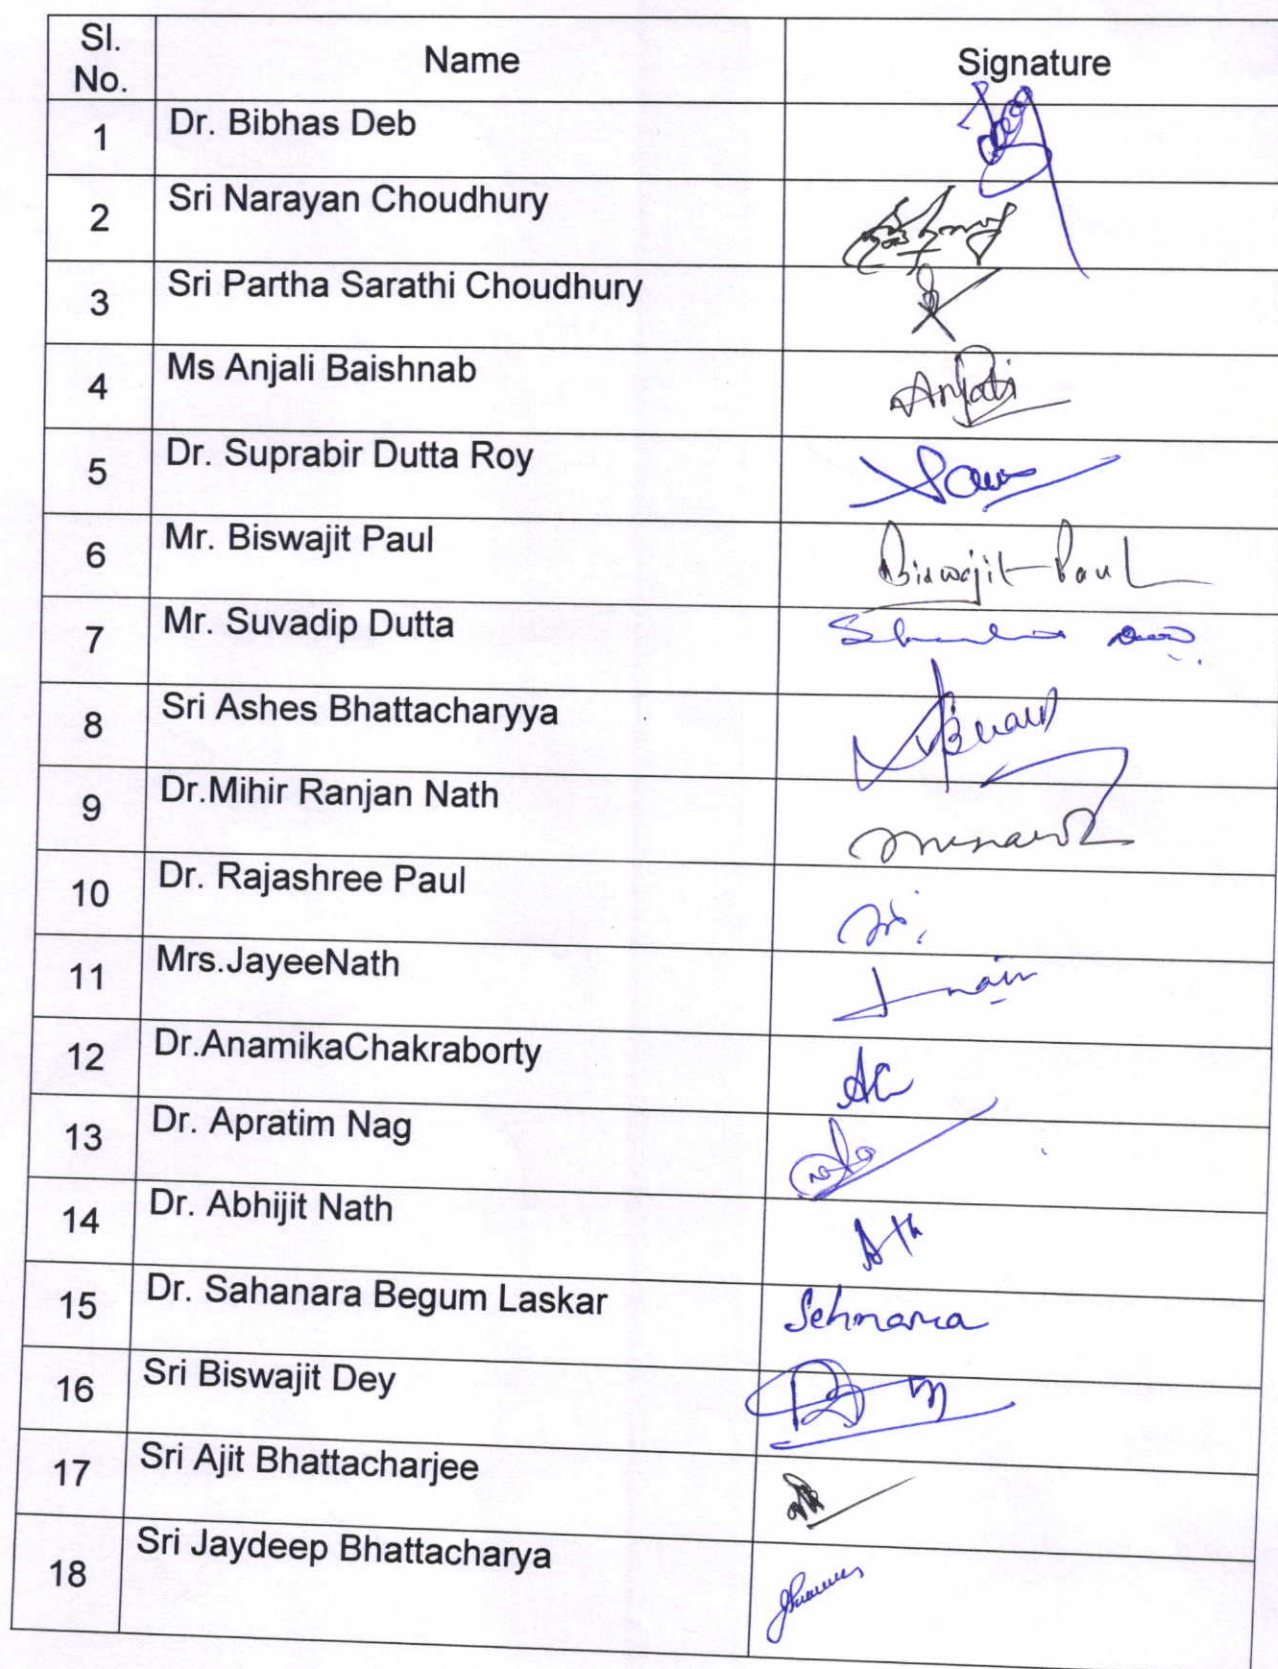 Sl. No. Name Signature
1 Dr. Bibhas Deb
2 Sri Narayan Choudhury
3 Sri Partha Sarathi Choudhury
4 Ms Anjali Baishnab Anjali
5 Dr. Suprabir Dutta Roy
6 Mr. Biswajit Paul Biswajit Paul
7 Mr. Suvadip Dutta
8 Sri Ashes Bhattacharyya
9 Dr.Mihir Ranjan Nath
10 Dr. Rajashree Paul
11 Mrs.JayeeNath
12 Dr.AnamikaChakraborty AC
13 Dr. Apratim Nag
14 Dr. Abhijit Nath
15 Dr. Sahanara Begum Laskar
16 Sri Biswajit Dey
17 Sri Ajit Bhattacharjee
18 Sri Jaydeep Bhattacharya